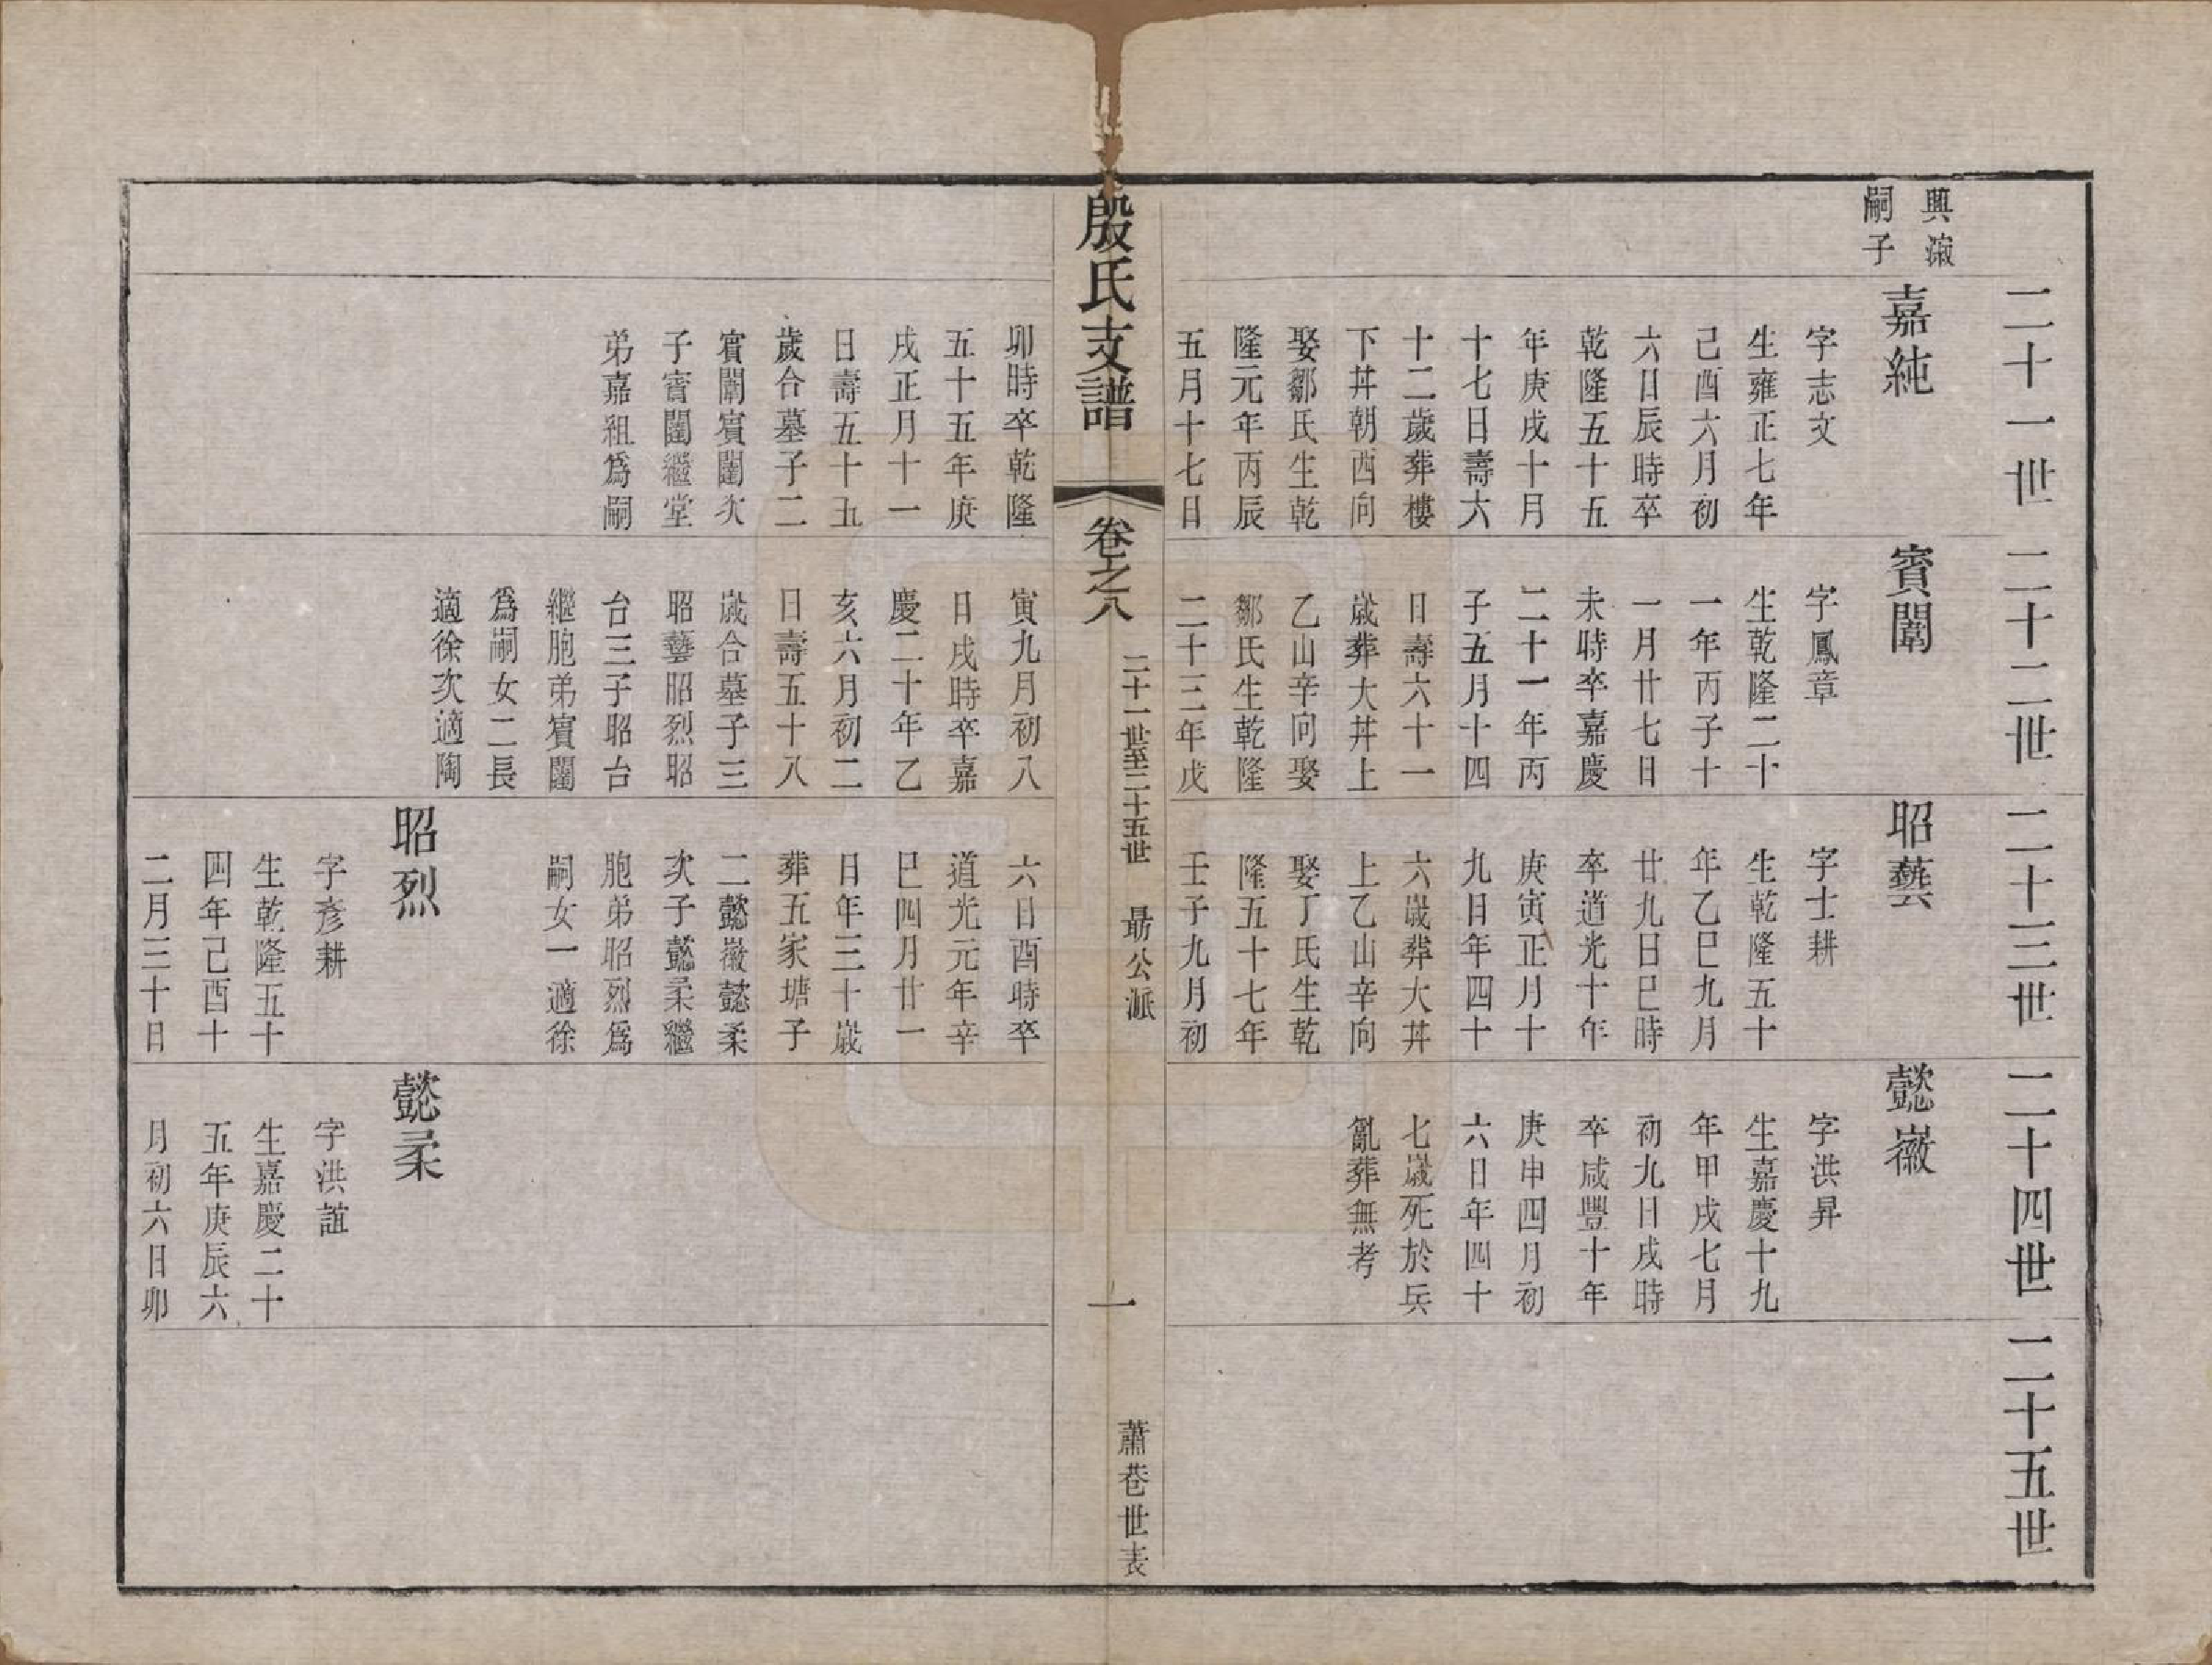 二十一世
二十二世
二十三世
二十四世
二十五世
興滧
嗣子
嘉純
字志文
生雍正七年
己酉六月初
六日辰時卒
乾隆五十五
年庚戌十月
十七日壽六
十二歲葬樓
下丼朝西向
娶鄒氏生乾
隆元年丙辰
五月十七日
卯時卒乾隆
五十五年庚
戌正月十一
日壽五十五
歲合墓子二
賓闈賓闥次
子賓闥繼堂
弟嘉祖爲嗣
賓闈
字鳳章
生乾隆二十
一年丙子十
一月廿七日
未時卒嘉慶
二十一年丙
子五月十四
日壽六十一
歲葬大丼上
乙山辛向娶
鄒氏生乾隆
二十三年戊
寅九月初八
日戌時卒嘉
慶二十年乙
亥六月初二
日壽五十八
歲合墓子三
昭藝昭烈昭
台三子昭台
繼胞弟賓闥
爲嗣女二長
適徐次適陶
昭藝
字士耕
生乾隆五十
年乙巳九月
廿九日巳時
卒道光十年
庚寅正月十
九日年四十
六歲葬大丼
上乙山辛向
娶丁氏生乾
隆五十七年
壬子九月初
六日酉時卒
道光元年辛
巳四月廿一
日年三十歲
葬五家塘子
二懿徽懿柔
次子懿柔繼
胞弟昭烈爲
嗣女一適徐
昭烈
字彥耕
生乾隆五十
四年己酉十
二月三十日
懿徽
字洪昇
生嘉慶十九
年甲戌七月
初九日戌時
卒咸豐十年
庚申四月初
六日年四十
七歲死於兵
亂葬無考
懿柔
字洪誼
生嘉慶二十
五年庚辰六
月初六日卯
殷氏支譜
卷之八
二十一世至二十五世
最公派
一
蕭巷世表